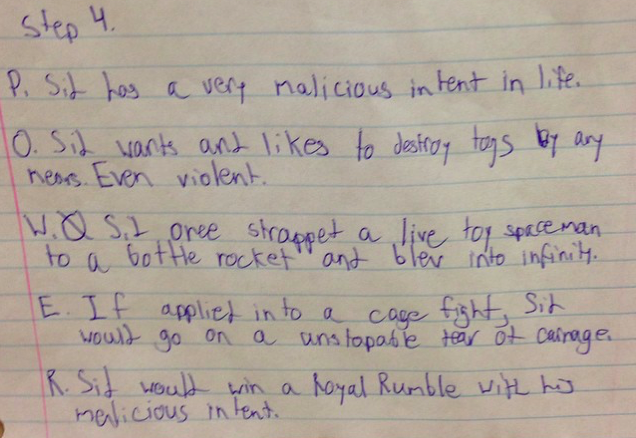 Step 4.
P. Sid has a very malicious intent in life.
O. Sid wants and likes to destroy toys by any
means. Even violent.
W. Sid once strapped a live toy spaceman
to a bottle rocket and blew into infinity.
E. If applied into a cage fight, Sid
would go on a unstopable tear of carnage.
R. Sid would win a Royal Rumble with his
malicious intent.